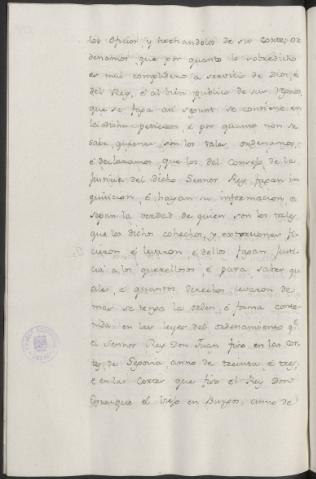 los oficios, y hechandolos de su corte; or
denamos que por quanto lo sobredicho
es mui complidero a servicio de Dios, é
del Rey, é al bien publico de sus Regnos,
que se faga asi segunt se contiene en
la dicha peticion. é por quanto non se
sabe quienes son los tales, ordenamos,
é declaramos, que los del Consejo de la
Justicia del dicho Sennor Rey, fagan in
quisicion, é hayan su informacion, a
sepan la verdad de quien son los tales
que los dichos cohechos, y extorsiones fi
cieron, é levaron, é dello fagan Justi
cia á los querellosos, é para saber qua
les, é quantos derechos levaron de
mas se tenga la orden, é forma conte
nida en las leyes del ordenamiento qe.
el Sennor Rey Don Juan fizo en las cor
tes de Segovia anno de treinta, é tres,
é en las cortes que fizo el Rey Don
Enrrique el viejo en Burgos, anno de